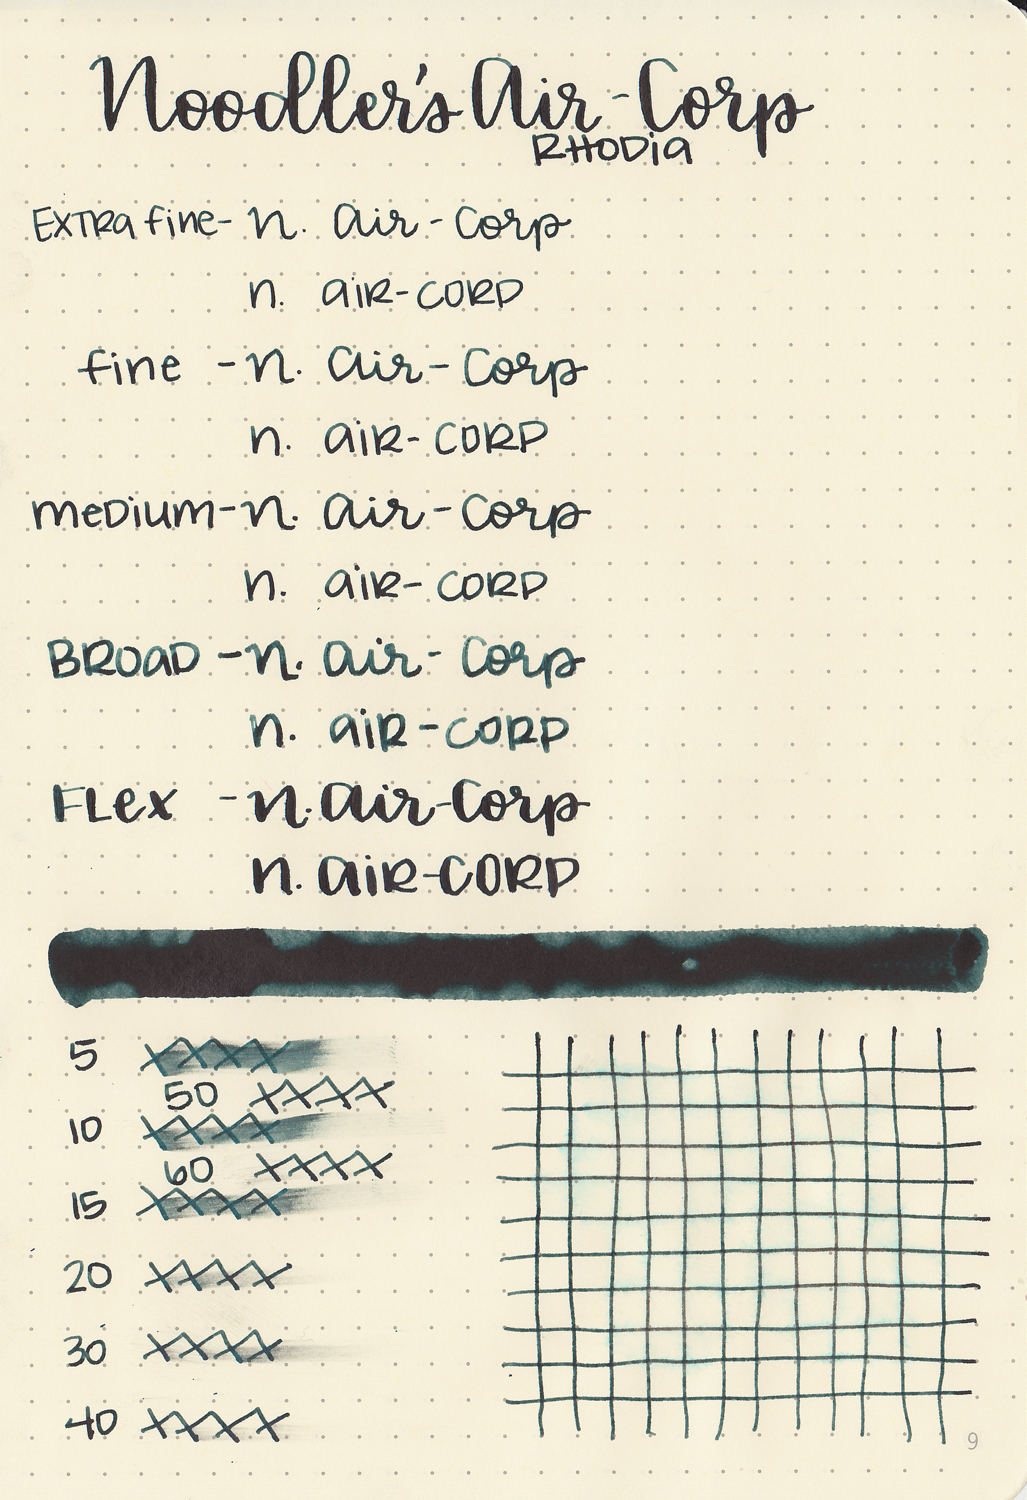 Noodler's Air-Corp
RHODia
EXTRa fine- n. air-Corp
n. aiR-CORP
fine - n. air-Corp
n. aiR-CORP
meDium - n. air-Corp
n. aiR-CORP
BROaD - n. air-Corp
n. aiR-CORP
FLex - n. air-Corp
n. aiR-CORP
5 XXXX
50 XXXX
10 XXXX
60 XXXX
15 XXXX
20 XXXX
30 XXXX
40 XXXX
9